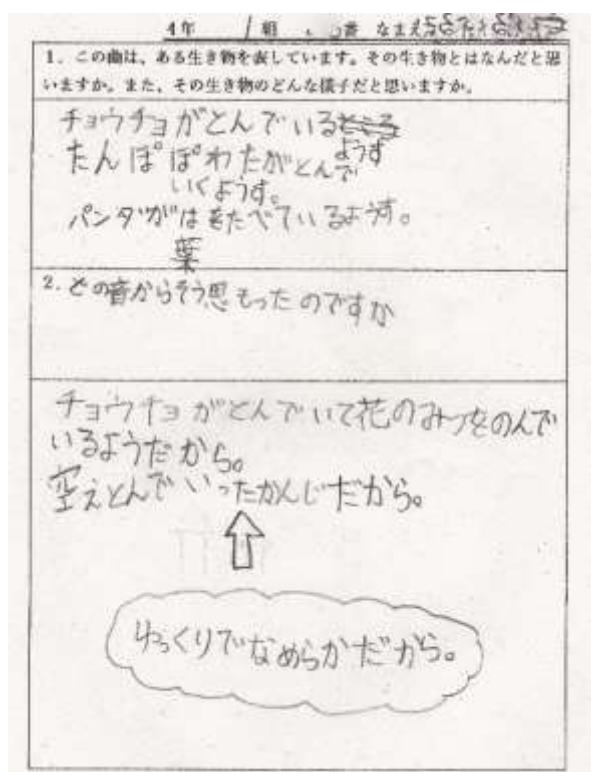 4年 1組 番 なまえ
1. この曲は、ある生き物を表しています。その生き物とはなんだと思
いますか。また、その生き物のどんな様子だと思いますか。
チョウチョがとんでいるところ
ようす
たんぽぽわたがとんで
いくようす。
パンダがはをたべているようす。
葉
2. どの音からそう思もったのですか
チョウチョがとんでいて花のみつをのんで
いるようだから。
空えとんでいったかんじだから。
ゆっくりでなめらかだから。